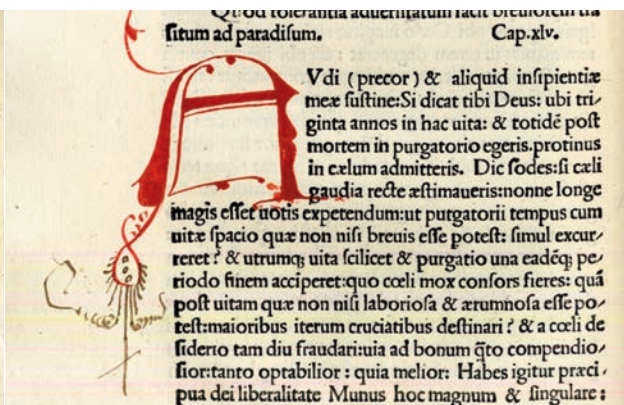 Quod tolerantia aduersitatum facit breuiorem tra
ſitum ad paradiſum. Cap.xlv.
AVdi (precor) & aliquid inſipientiæ
meæ ſuſtine:Si dicat tibi Deus: ubi tri⸗
ginta annos in hac uita: & totidē poſt
mortem in purgatorio egeris.protinus
in cælum admitteris. Dic ſodes:ſi cæli
gaudia recte æſtimaueris:nonne longe
magis eſſet uotis expetendum:ut purgatorii tempus cum
uitæ ſpacio quæ non niſi breuis eſſe poteſt: ſimul excur⸗
reret? & utrumq; uita ſcilicet & purgatio una eadēq; pe⸗
riodo finem acciperet:quo cœli mox conſors fieres: quā
poſt uitam quæ non niſi laborioſa & ærumnoſa eſſe po⸗
teſt:maioribus iterum cruciatibus deſtinari? & a cœli de
ſiderio tam diu fraudari:uia ad bonum q̄to compendio⸗
ſior:tanto optabilior: quia melior: Habes igitur præci⸗
pua dei liberalitate Munus hoc magnum & ſingulare: